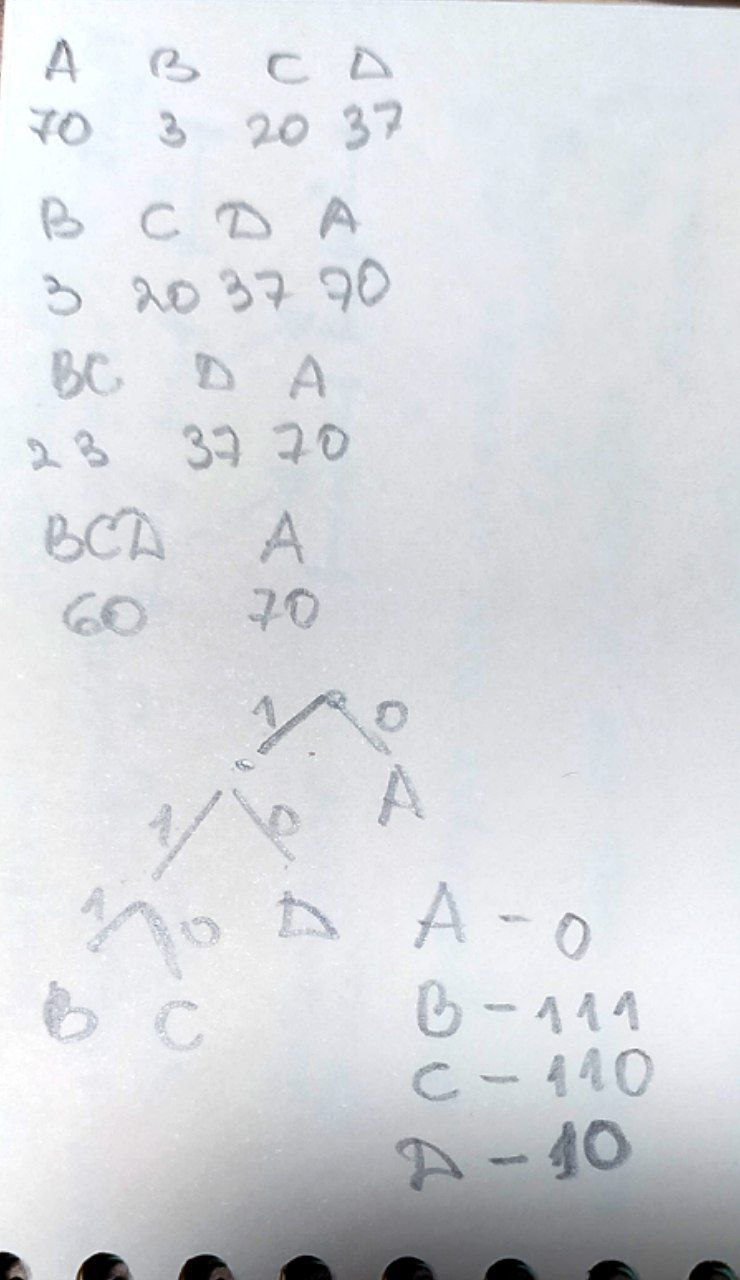 A B C D
70 3 20 37
B C D A
3 20 37 70
BC D A
23 37 70
BCD A
60 70
1 0
1 0 A
1 0 D
B C
A - 0
B - 111
C - 110
D - 10